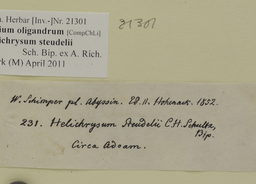 . Herbar [Inv.-]Nr. 21301
ium oligandrum [CompChLi]
ichrysum steudelii
Sch. Bip. ex A. Rich.
rk (M) April 2011
21301
W. Schimper pl. Abyssin. Ed. R. Hohenack. 1852.
231. Helichrysum Steudelii C.H. Schultz,
Bip.
Circa Adoam.